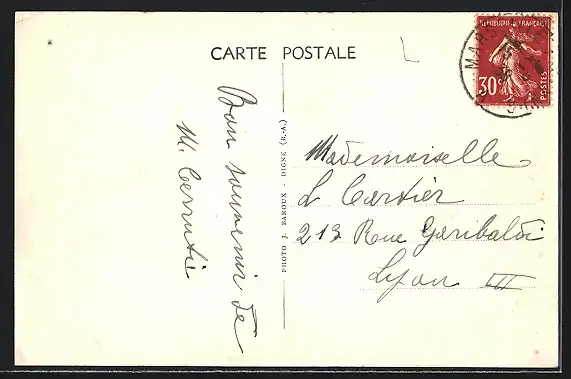 CARTE POSTALE
REPUBLIQUE FRANÇAISE
30c
POSTES
MARS
Bon souvenir de
M. Cerrutie
PHOTO J. BAROUX - DIGNE (B.-A.)
Mademoiselle
L Cartier
213 Rue Garibaldi
Lyon III